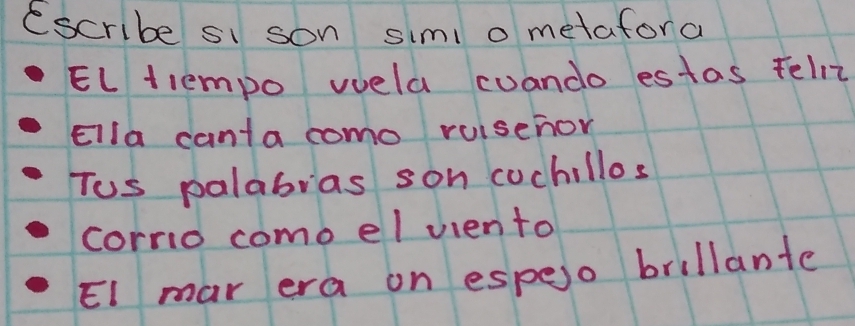 Escribe si son simi o metafora
• EL tiempo vuela cuando estas feliz
• Ella canta como ruiseñor
• Tus palabras son cuchillos
• corrio como el viento
• El mar era un espejo brillante